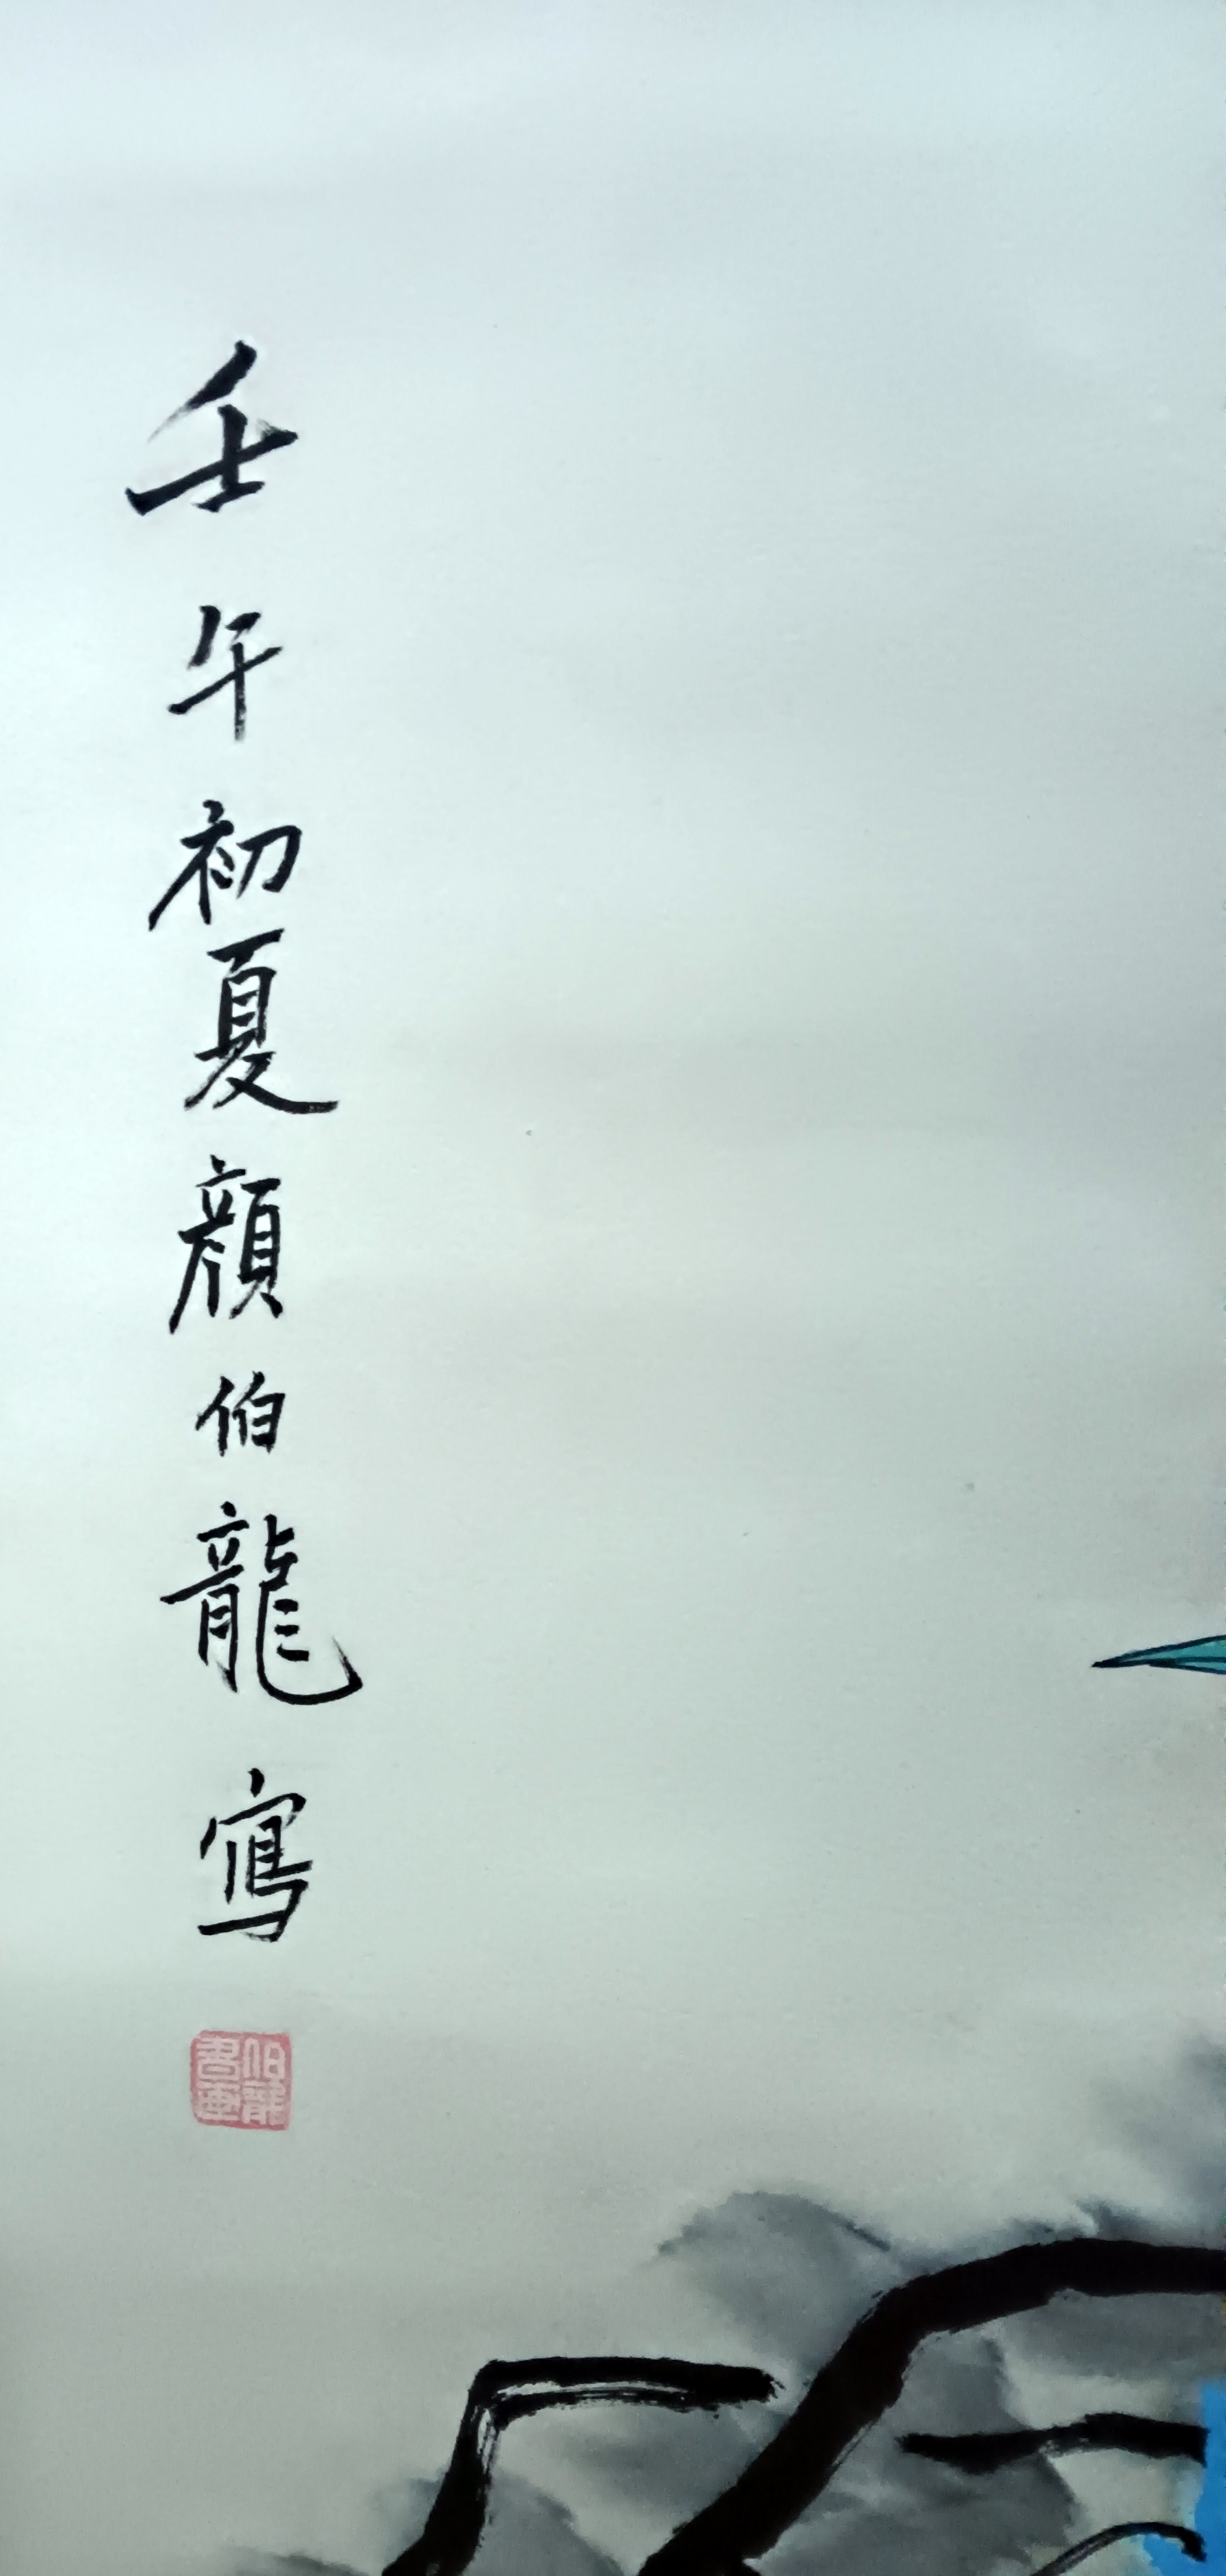 壬午初夏顔伯龍寫
伯龍書畫